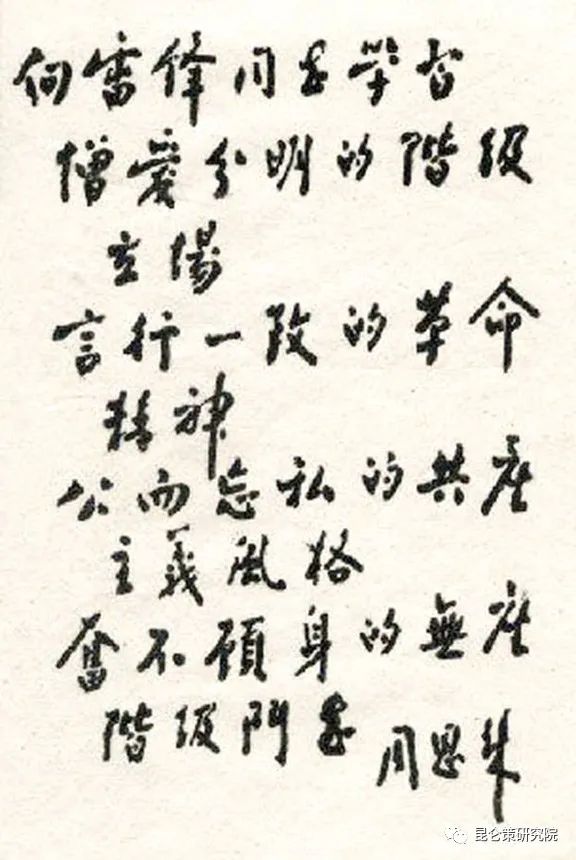 向雷锋同志学習
憎愛分明的階級
立場
言行一致的革命
精神
公而忘私的共産
主義風格
奮不顧身的無産
階級鬥志
周恩来
昆仑策研究院